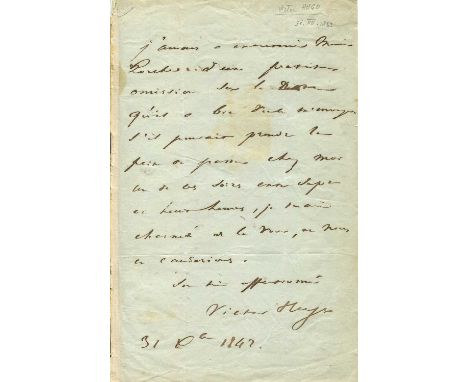 Victor HUGO
31.XII.1842
j'aurais à entretenir Mr
d'une
omission sur la
qu'il a bien voulu m'envoyer
s'il pouvait prendre la
peine de passer chez moi
un de ces soirs entre sept
et huit heures, je serais
charmé de le voir, et nous
en causerions.
Son bien affectionné
Victor Hugo
31 Xbre 1842.